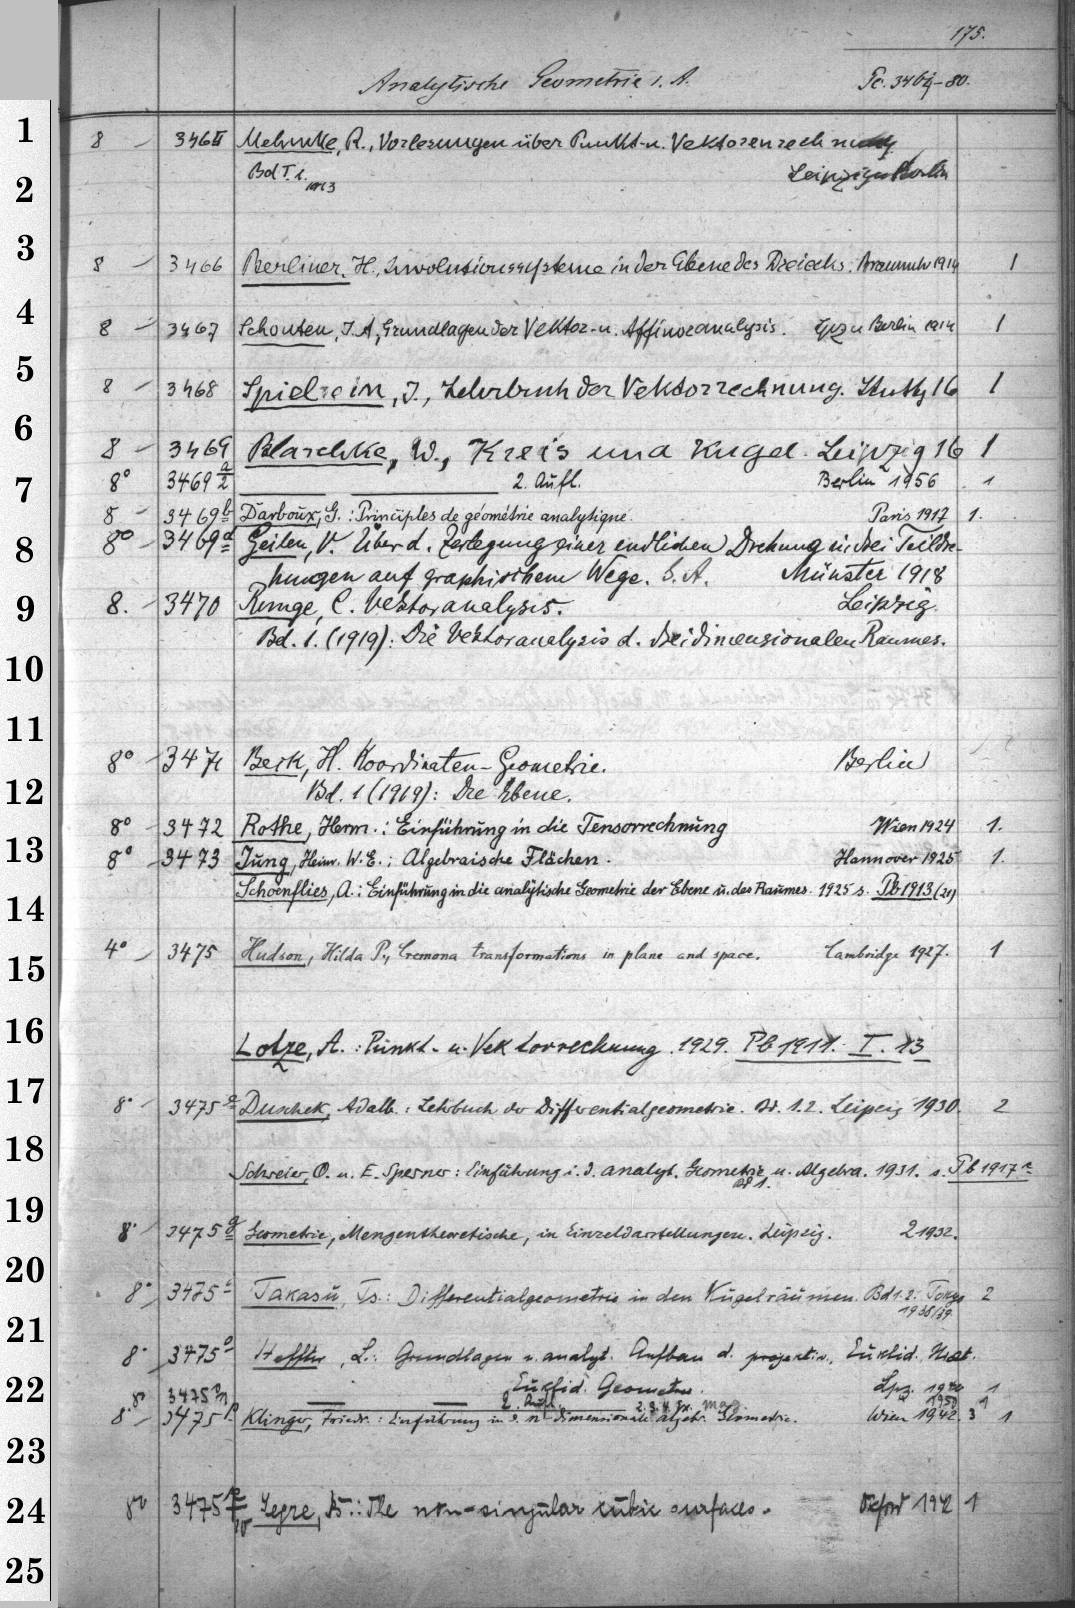 175.
Analytische Geometrie i. A.
8 346 Mehmke, R., Vorlesungen über Punkt- u. Vektorenrechnung
Bd I. 1. 1913 Leipzig u Berlin
8 3466 Berliner, H., Involutionssysteme in der Ebene des Dreiecks. Braunschw 1914 1
8 3467 Schouten, J. A., Grundlagen der Vektor- u. Affinoranalysis. Lpz u Berlin 1914 1
8 3468 Spielrein, J., Lehrbuch der Vektorrechnung. Stuttg 16 1
8 3469 Blaschke, W., Kreis und Kugel. Leipzig 16 1
8° 3469 a/2 2. Aufl. Berlin 1956 1
8 3469 b Darboux, G.: Principles de géométrie analytique. Paris 1917 1.
8° 3469 d Geilen, V. Über d. Zerlegung einer endlichen Drehung in drei Teildre-
hungen auf graphischem Wege. S. A. Münster 1918
8. 3470 Runge, C. Vektoranalysis. Leipzig.
Bd. 1. (1919): Die Vektoranalysis d. dreidimensionalen Raumes.
8° 3471 Beck, H. Koordinaten-Geometrie. Berlin
Bd. 1 (1919): Die Ebene.
8° 3472 Rothe, Herm.: Einführung in die Tensorrechnung Wien 1924 1.
8° 3473 Jung, Heinr. W. E.: Algebraische Flächen. Hannover 1925 1.
Schoenflies, A.: Einführung in die analytische Geometrie der Ebene u. des Raumes. 1925 s. Pb 1913 (21)
4° 3475 Hudson, Hilda P., Cremona transformations in plane and space. Cambridge 1927. 1
Lotze, A.: Punkt- u. Vektorrechnung. 1929. Pb 1911. I. 13
8° 3475 a Duschek, Adalb.: Lehrbuch der Differentialgeometrie. Bd. 1.2. Leipzig 1930. 2
Schreier, O. u. E. Sperner: Einführung i. d. analyt. Geometrie u. Algebra. 1931. s. Pb 1917
Bd 1.
8° 3475 g Geometrie, Mengentheoretische, in Einzeldarstellungen. Leipzig. 2 1932.
8° 3475 i Takasu, Ts.: Differentialgeometrie in den Kugelräumen. Bd 1.2. Tokyo 2
1938/39
8° 3475 o Heffter, L.: Grundlagen u. analyt. Aufbau d. projektiv., Euklid. Nicht.
Euklid. Geometrie. Lpz. 1940 1
8° 3475 2. Aufl. 1950 1
8° 3475 p Klinger, Friedr.: Einführung in d. n-dimensionale algebr. Geometrie. Wien 1942. 3 1
8° 3475 Segre, B.: The non-singular cubic surfaces. Oxford 1942 1
1
2
3
4
5
6
7
8
9
10
11
12
13
14
15
16
17
18
19
20
21
22
23
24
25